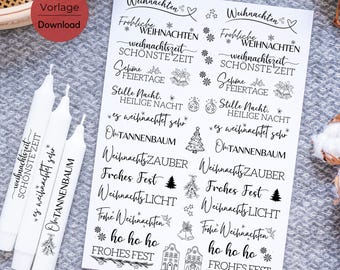 Vorlage
Download
Weihnachten
Fröhliche WEIHNACHTEN
Fröhliche WEIHNACHTEN
weihnachtszeit
SCHÖNSTE ZEIT
weihnachtszeit
SCHÖNSTE ZEIT
Schöne FEIERTAGE
Schöne FEIERTAGE
Stille Nacht,
HEILIGE NACHT
Stille Nacht,
HEILIGE NACHT
es weihnachtet sehr
es weihnachtet sehr
Oh TANNENBAUM
Oh TANNENBAUM
Weihnachts ZAUBER
Weihnachts ZAUBER
Frohes Fest
Frohes Fest
Weihnachts LICHT
Weihnachts LICHT
Frohe Weihnachten
Frohe Weihnachten
ho ho ho
ho ho ho
FROHES FEST
FROHES FEST
weihnachtszeit
SCHÖNSTE ZEIT
es weihnachtet sehr
Oh TANNENBAUM